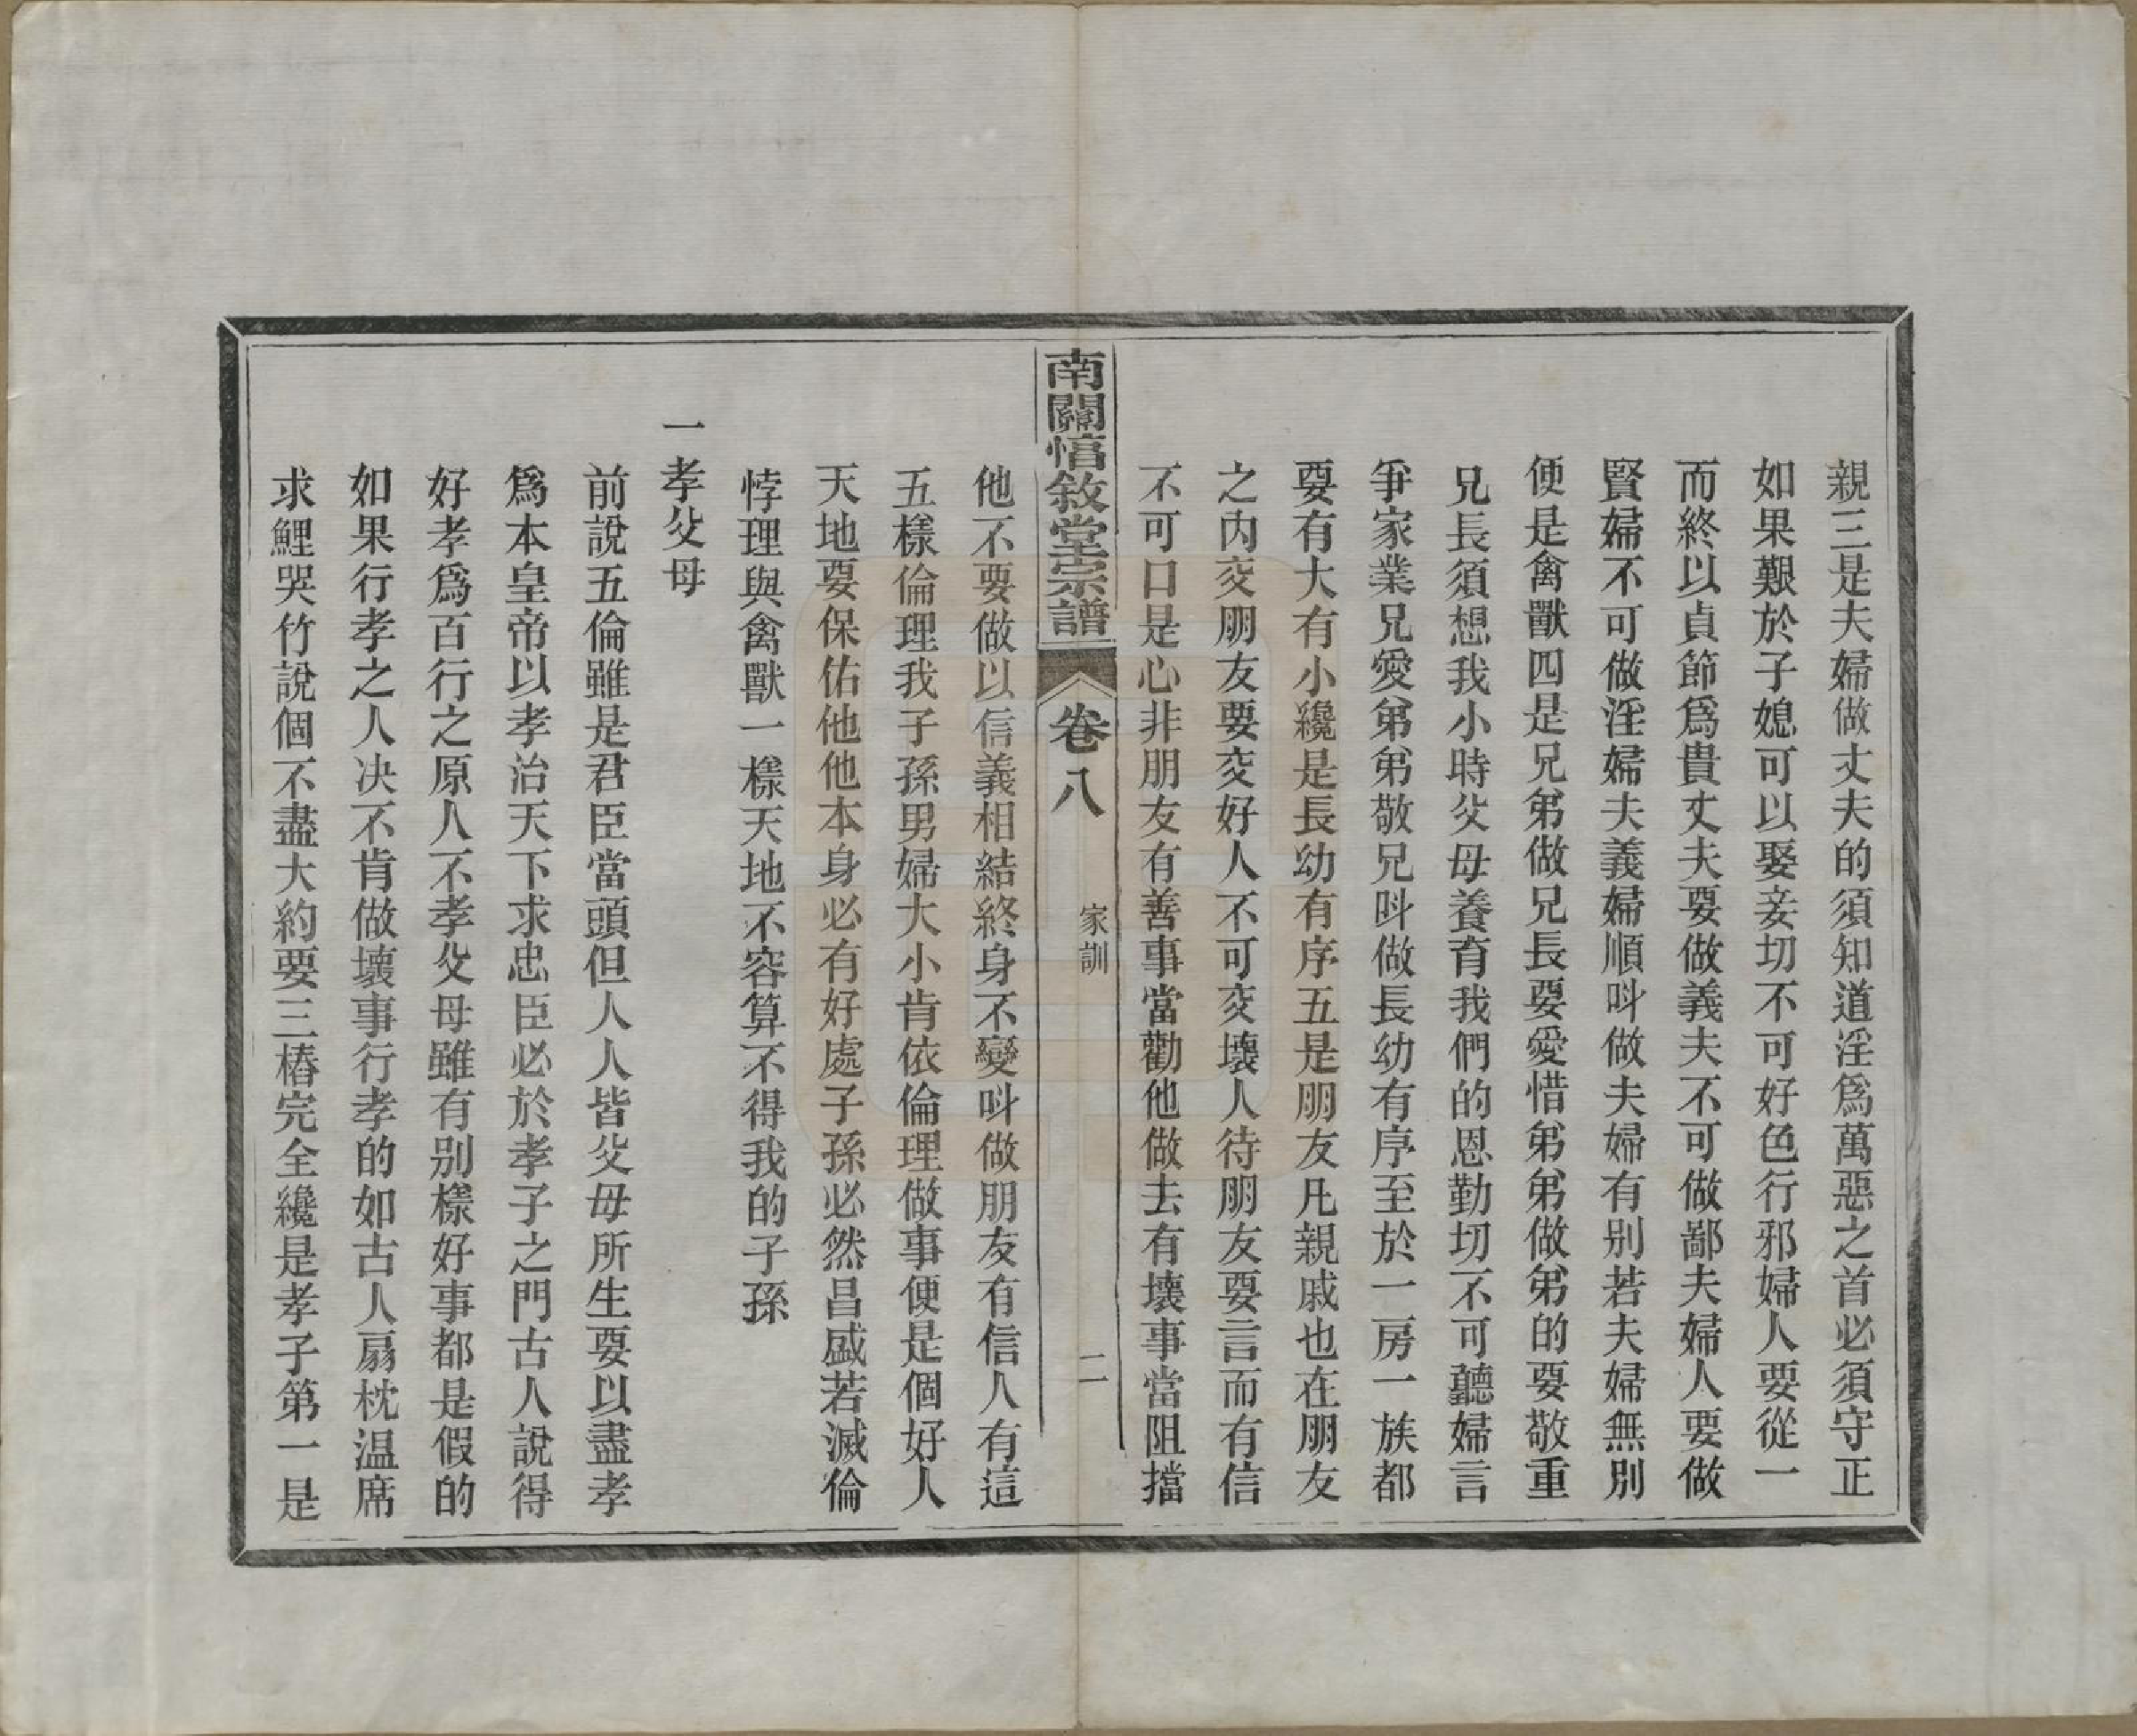 親三是夫婦做丈夫的須知道淫爲萬惡之首必須守正
如果艱於子媳可以娶妾切不可好色行邪婦人要從一
而終以貞節爲貴丈夫要做義夫不可做鄙夫婦人要做
賢婦不可做淫婦夫義婦順呌做夫婦有别若夫婦無別
便是禽獸四是兄弟做兄長要愛惜弟弟做弟的要敬重
兄長須想我小時父母養育我們的恩勤切不可聽婦言
爭家業兄愛弟弟敬兄呌做長幼有序至於一房一族都
要有大有小纔是長幼有序五是朋友凡親戚也在朋友
之内交朋友要交好人不可交壞人待朋友要言而有信
不可口是心非朋友有善事當勸他做去有壞事當阻擋
南關惇敘堂宗譜
卷八
家訓
二
他不要做以信義相結終身不變呌做朋友有信人有這
五樣倫理我子孫男婦大小肯依倫理做事便是個好人
天地要保佑他他本身必有好處子孫必然昌盛若滅倫
悖理與禽獸一樣天地不容算不得我的子孫
一孝父母
前說五倫雖是君臣當頭但人人皆父母所生要以盡孝
爲本皇帝以孝治天下求忠臣必於孝子之門古人說得
好孝爲百行之原人不孝父母雖有别樣好事都是假的
如果行孝之人决不肯做壞事行孝的如古人扇枕温席
求鯉哭竹說個不盡大約要三樁完全纔是孝子第一是